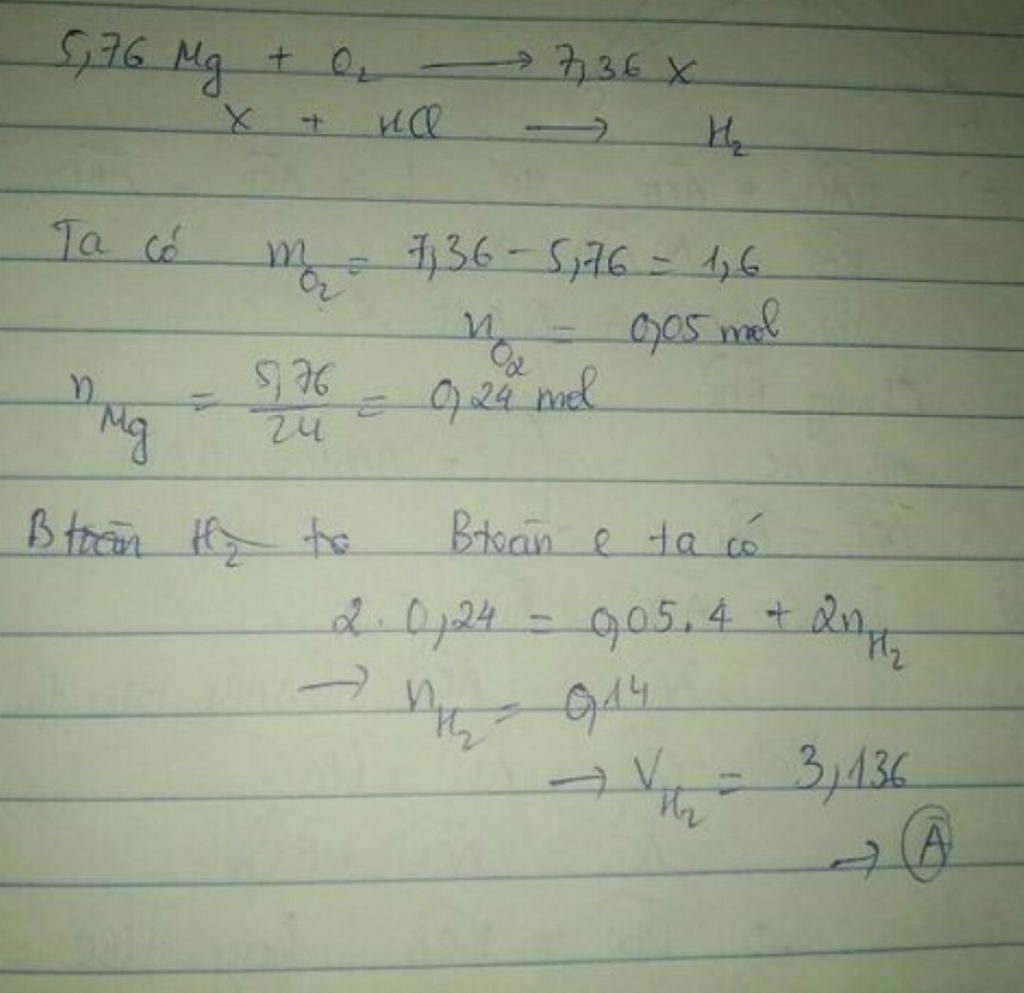 5,76 Mg + O₂ → 7,36 X
X + HCl → H₂
Ta có m_O₂ = 7,36 - 5,76 = 1,6
n_O₂ = 0,05 mol
n_Mg = 5,76/24 = 0,24 mol
Btoàn H₂ ta Btoàn e ta có
2 . 0,24 = 0,05 . 4 + 2n_H₂
→ n_H₂ = 0,14
→ V_H₂ = 3,136
→ A